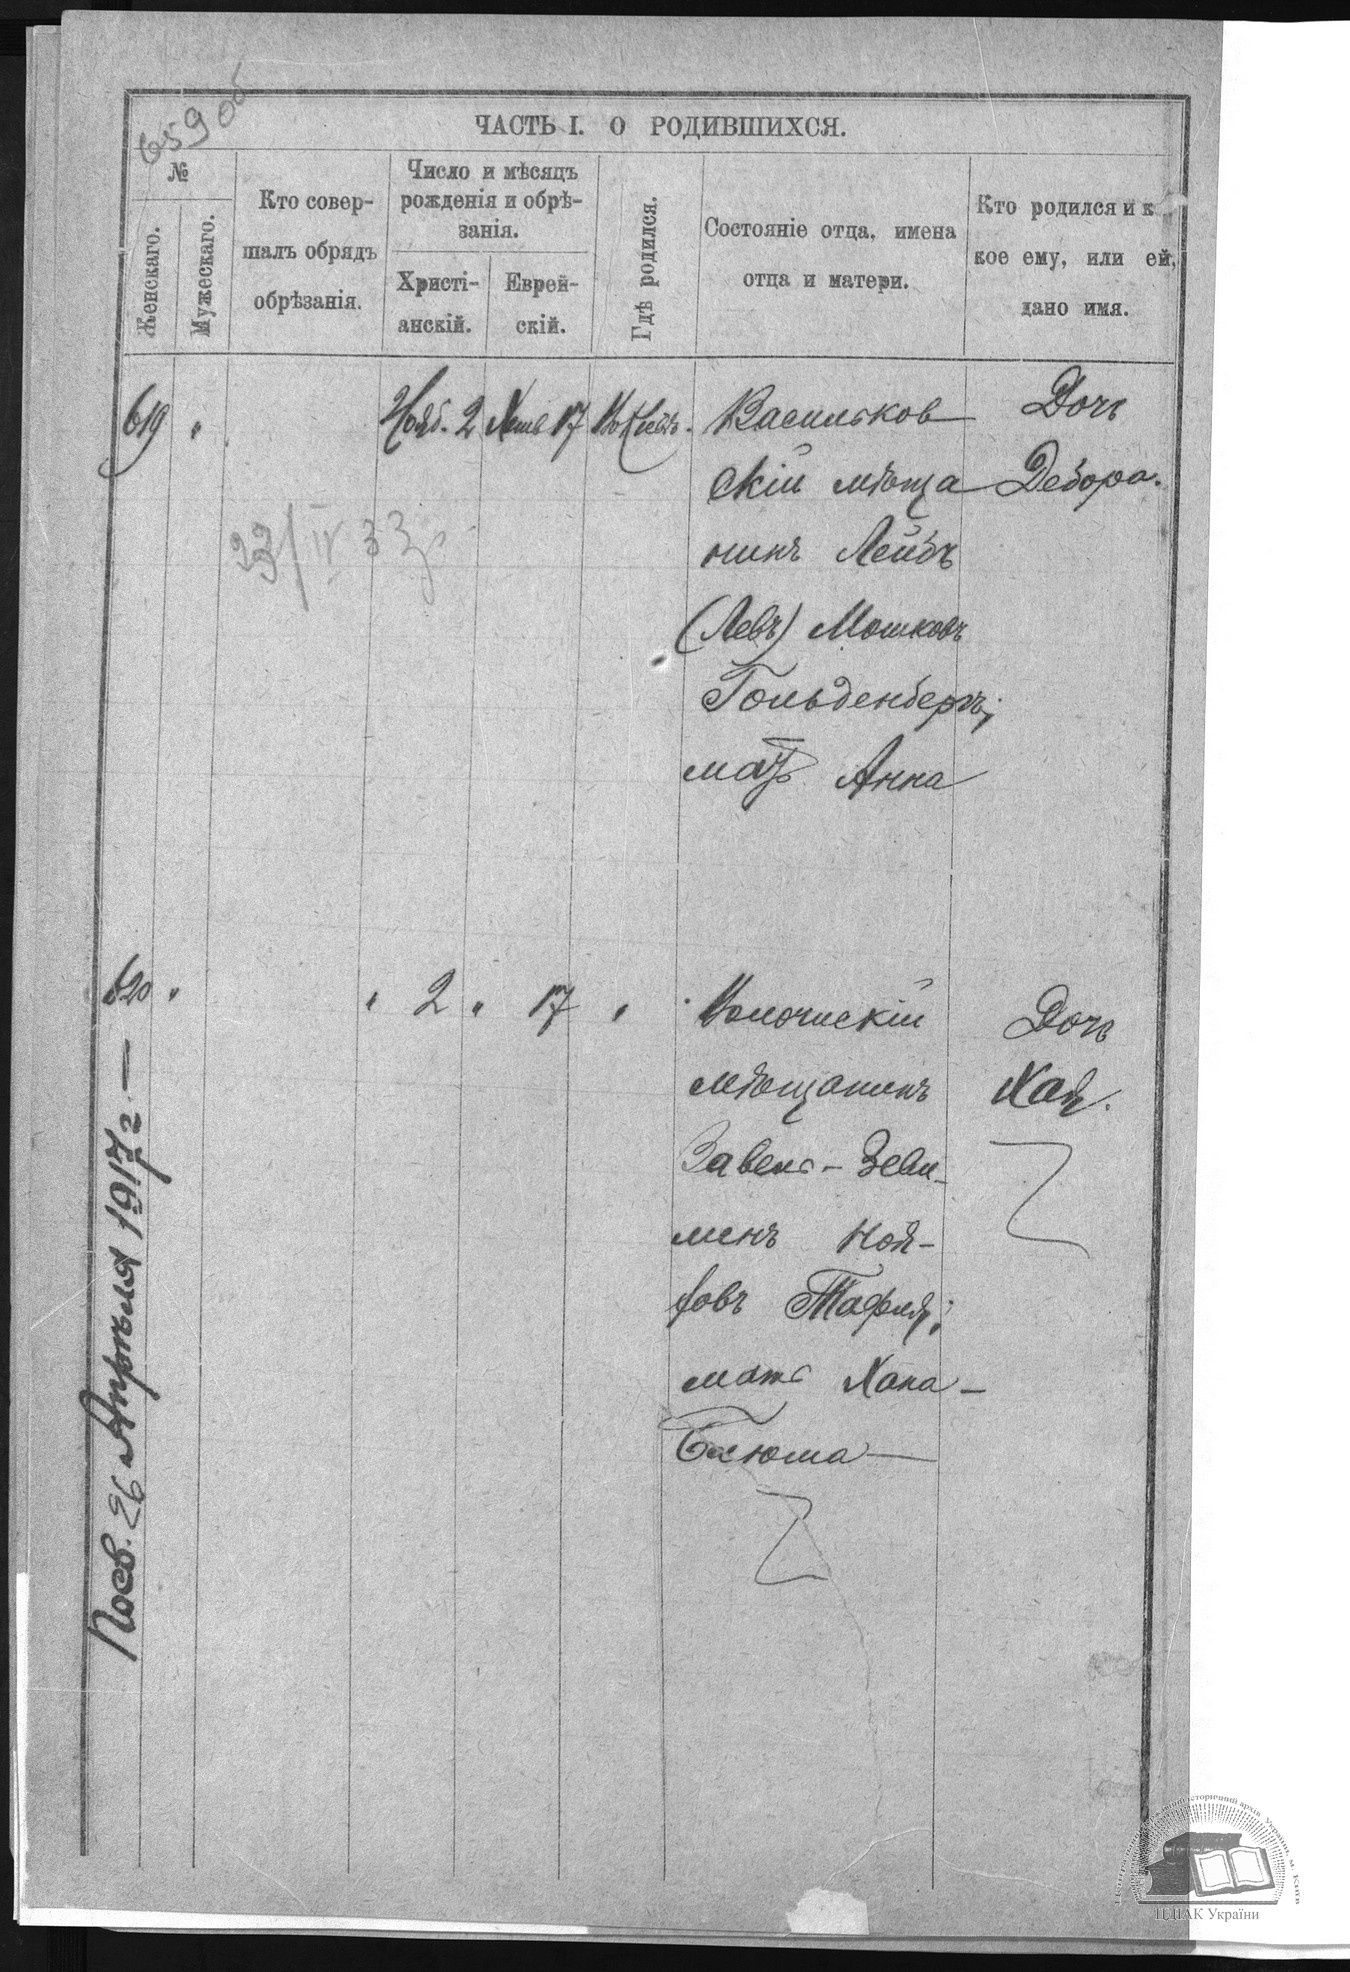 659 об
ЧАСТЬ I. О РОДИВШИХСЯ.
№
Женскаго.
Мужескаго.
Кто совер-
шалъ обрядъ
обрѣзанія.
Число и мѣсяцъ
рожденія и обрѣ-
занія.
Христі-
анскій.
Еврей-
скій.
Гдѣ родился.
Состояніе отца, имена
отца и матери.
Кто родился и к
кое ему, или ей,
дано имя.
619 "
Нояб. 2
17
Васильков
скій мѣща
нинъ Лейбъ
(Левъ) Мошковъ
Гольденбергъ;
мать Анна
Дочь
Дебора.
23/IV 33г.
620 "
" 2 " 17 "
мѣщанинъ
Завель-Зели-
менъ Ной-
ховъ Тафля;
мать Хана-
Бхюма
Дочь
Хая.
Посв. 26 Апрѣля 1917 г. —
ЦДІАК України